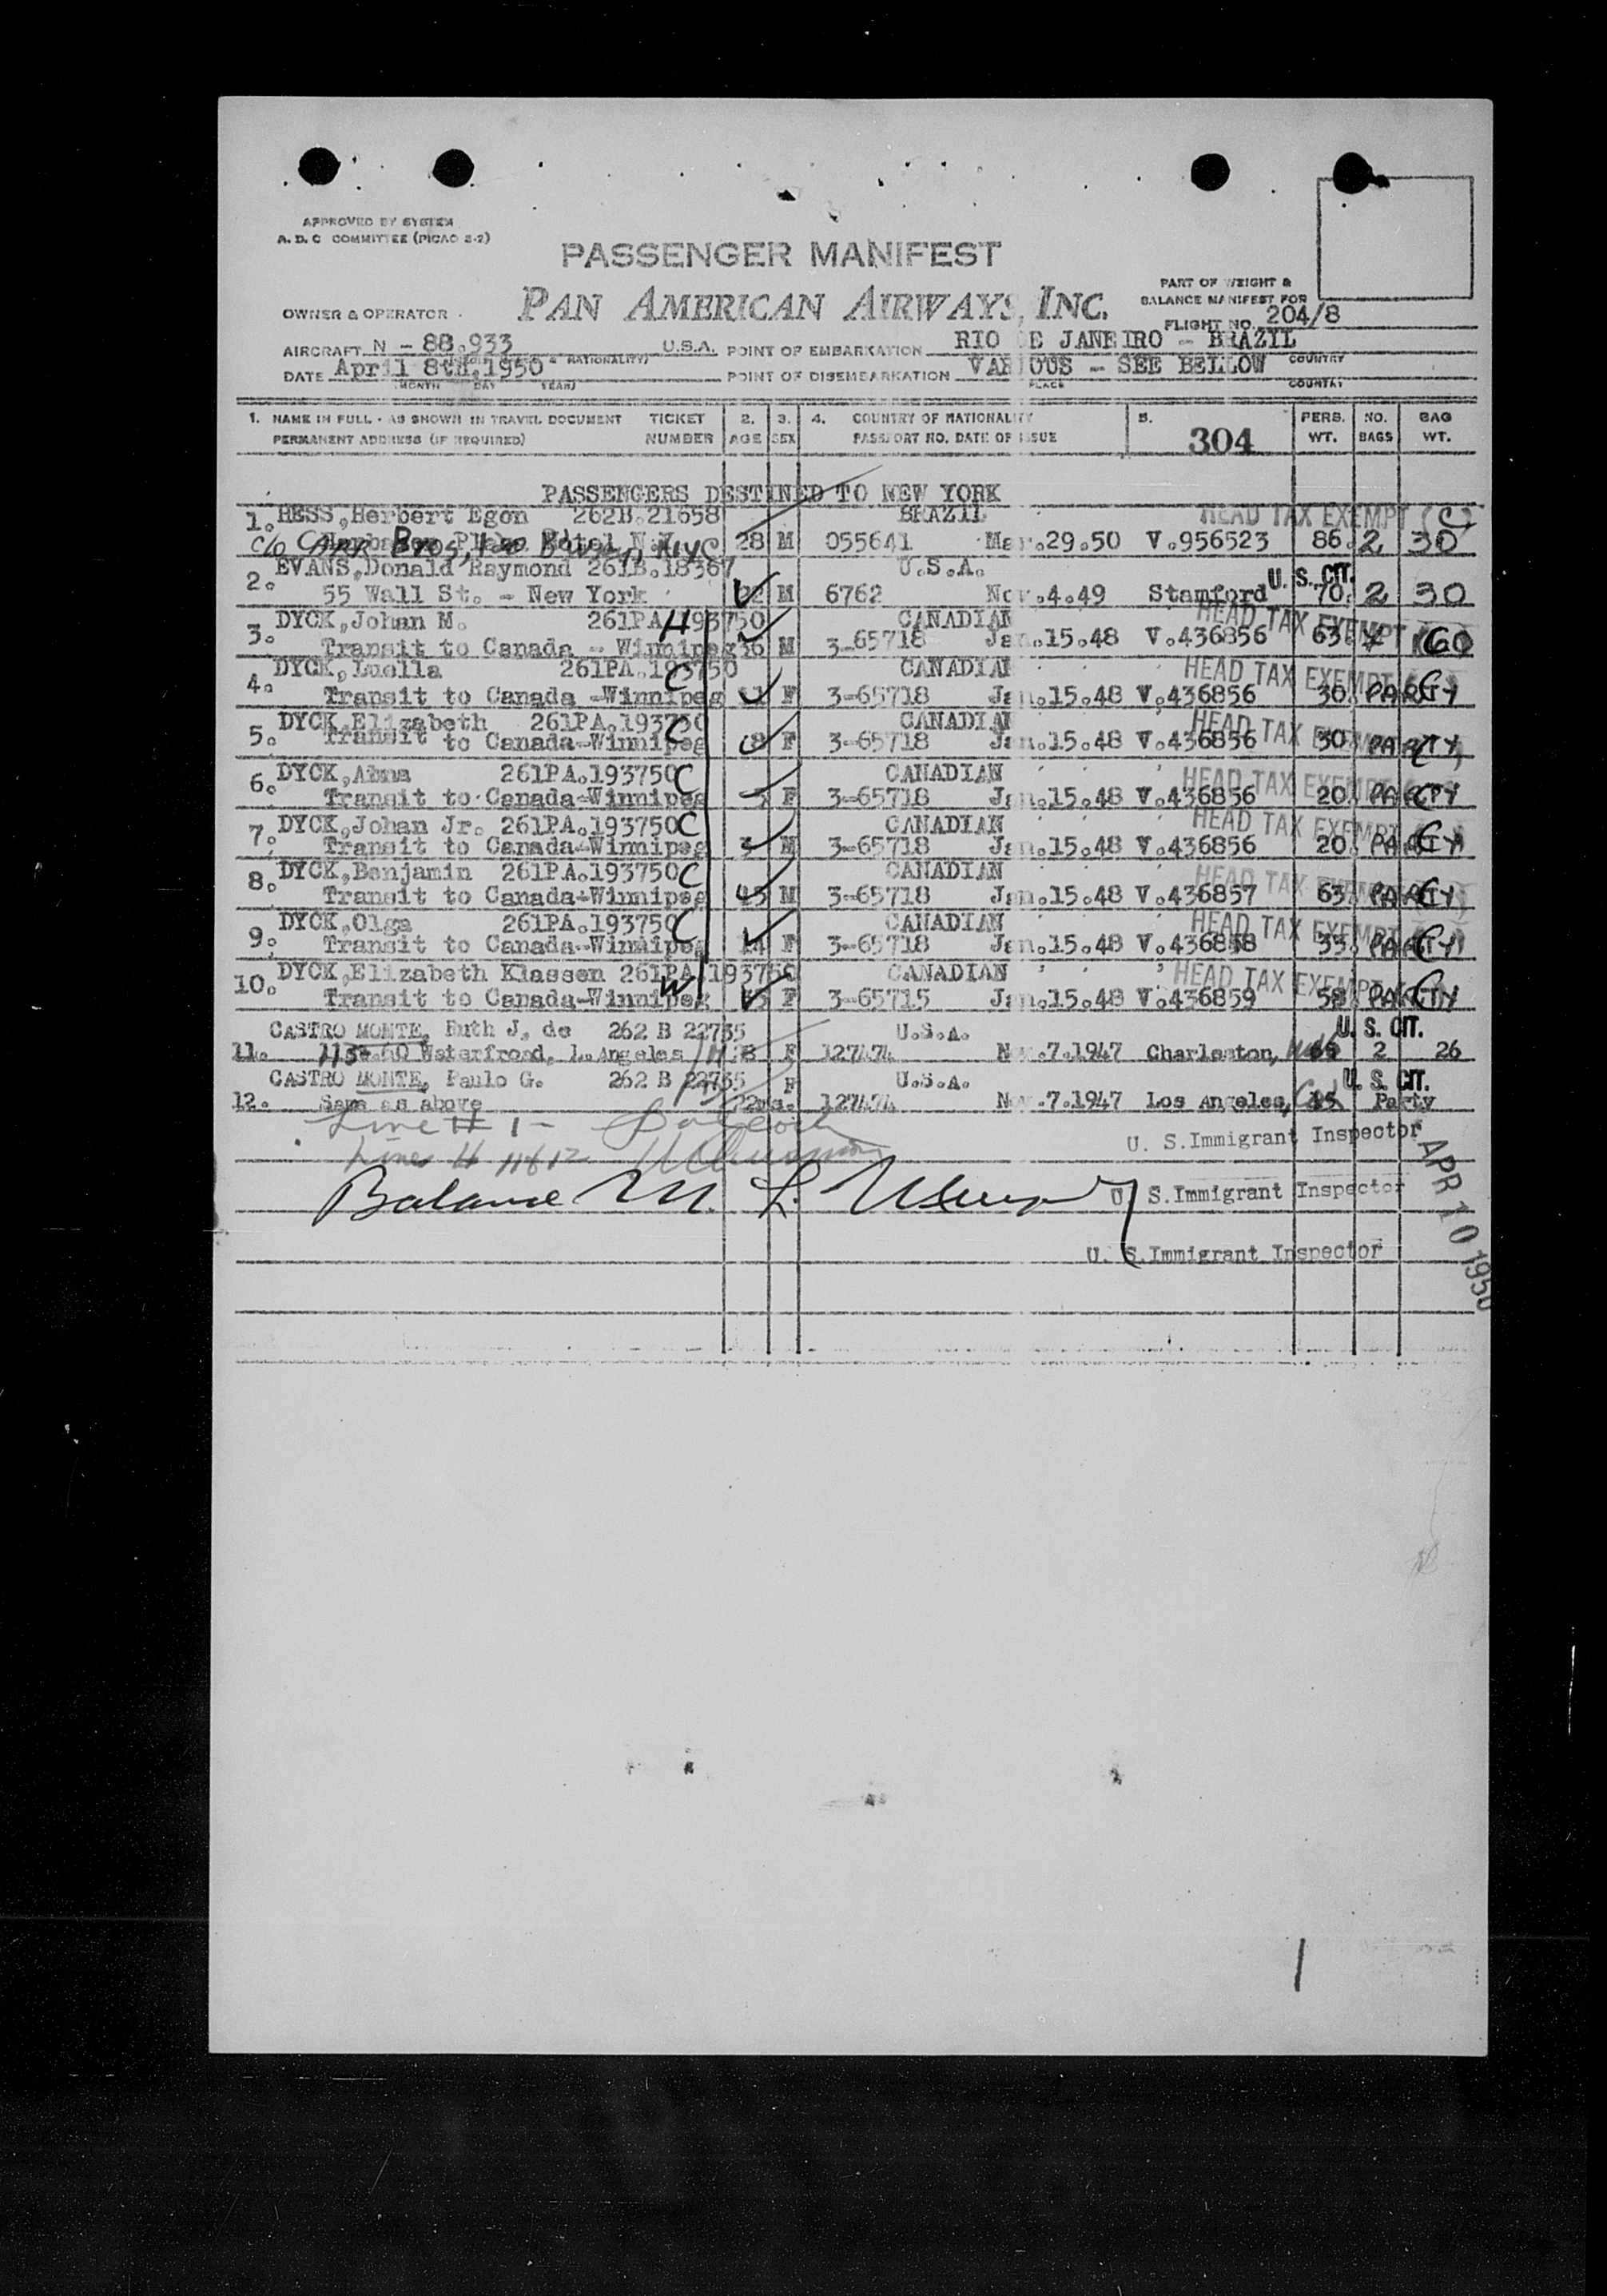 APPROVED BY SYSTEM
A. D. C COMMITTEE (PICAO S-2)
PASSENGER MANIFEST
PAN AMERICAN AIRWAYS, INC.
PART OF WEIGHT &
BALANCE MANIFEST FOR
FLIGHT NO. 204/8
OWNER & OPERATOR
AIRCRAFT N - 88.933 U.S.A. POINT OF EMBARKATION RIO DE JANEIRO - BRAZIL
& NATIONALITY) COUNTRY
DATE April 8th.1950 POINT OF DISEMBARKATION VARIOUS - SEE BELLOW
(MONTH DAY YEAR) PLACE COUNTRY
1. NAME IN FULL - AS SHOWN IN TRAVEL DOCUMENT TICKET 2. 3. 4. COUNTRY OF NATIONALITY 5. PERS. NO. BAG
PERMANENT ADDRESS (IF REQUIRED) NUMBER AGE SEX PASSPORT NO. DATE OF ISSUE 304 WT. BAGS WT.
PASSENGERS DESTINED TO NEW YORK
1. HESS,Herbert Egon 262B.21658 BRAZIL HEAD TAX EXEMPT (C)
c/o CARR Bros, NYC 28 M 055641 Mar.29.50 V.956523 86. 2 30
2. EVANS,Donald Raymond 261B.18367 U.S.A. U. S. CIT.
55 Wall St. - New York M 6762 Nov.4.49 Stamford 70. 2 30
3. DYCK,Johan M. 261PA.193750 H CANADIAN HEAD TAX EXEMPT
Transit to Canada - Winnipeg 36 M 3-65718 Jan.15.48 V.436856 63.
4. DYCK,Luella 261PA.193750 C CANADIAN HEAD TAX EXEMPT (C)
Transit to Canada -Winnipeg F 3-65718 Jan.15.48 V.436856 30. PARTY
5. DYCK,Elizabeth 261PA.193750 C CANADIAN HEAD TAX EXEMPT (C)
Transit to Canada-Winnipeg 8 F 3-65718 Jan.15.48 V.436856 30 PARTY
6. DYCK, 261PA.193750 C CANADIAN HEAD TAX EXEMPT (C)
Transit to Canada-Winnipeg F 3-65718 Jan.15.48 V.436856 20. PARTY
7. DYCK,Johan Jr. 261PA.193750 C CANADIAN HEAD TAX EXEMPT (C)
Transit to Canada-Winnipeg M 3-65718 Jan.15.48 V.436856 20. PARTY
8. DYCK,Benjamin 261PA.193750 C CANADIAN HEAD TAX EXEMPT (C)
Transit to Canada-Winnipeg 45 M 3-65718 Jan.15.48 V.436857 63. PARTY
9. DYCK,Olga 261PA.193750 C CANADIAN HEAD TAX EXEMPT (C)
Transit to Canada-Winnipeg F 3-65718 Jan.15.48 V.436858 35. PARTY
10. DYCK,Elizabeth Klassen 261PA.193750 W CANADIAN HEAD TAX EXEMPT (C)
Transit to Canada-Winnipeg F 3-65715 Jan.15.48 V.436859 58. PARTY
CASTRO MONTE, Ruth J. de 262 B 22735 U.S.A. U. S. CIT.
11. Waterfrood, L.Angeles F 127474 Nov.7.1947 Charleston, 2 26
CASTRO MONTE, Paulo G. 262 B 22735 U.S.A. U. S. CIT.
12. Same as above 127474 Nov.7.1947 Los Angeles, Party
Line # 1 -
U. S.Immigrant Inspector
Lines # 11 & 12
Balance M. L.
U. S.Immigrant Inspector
APR 10 1950
U. S.Immigrant Inspector